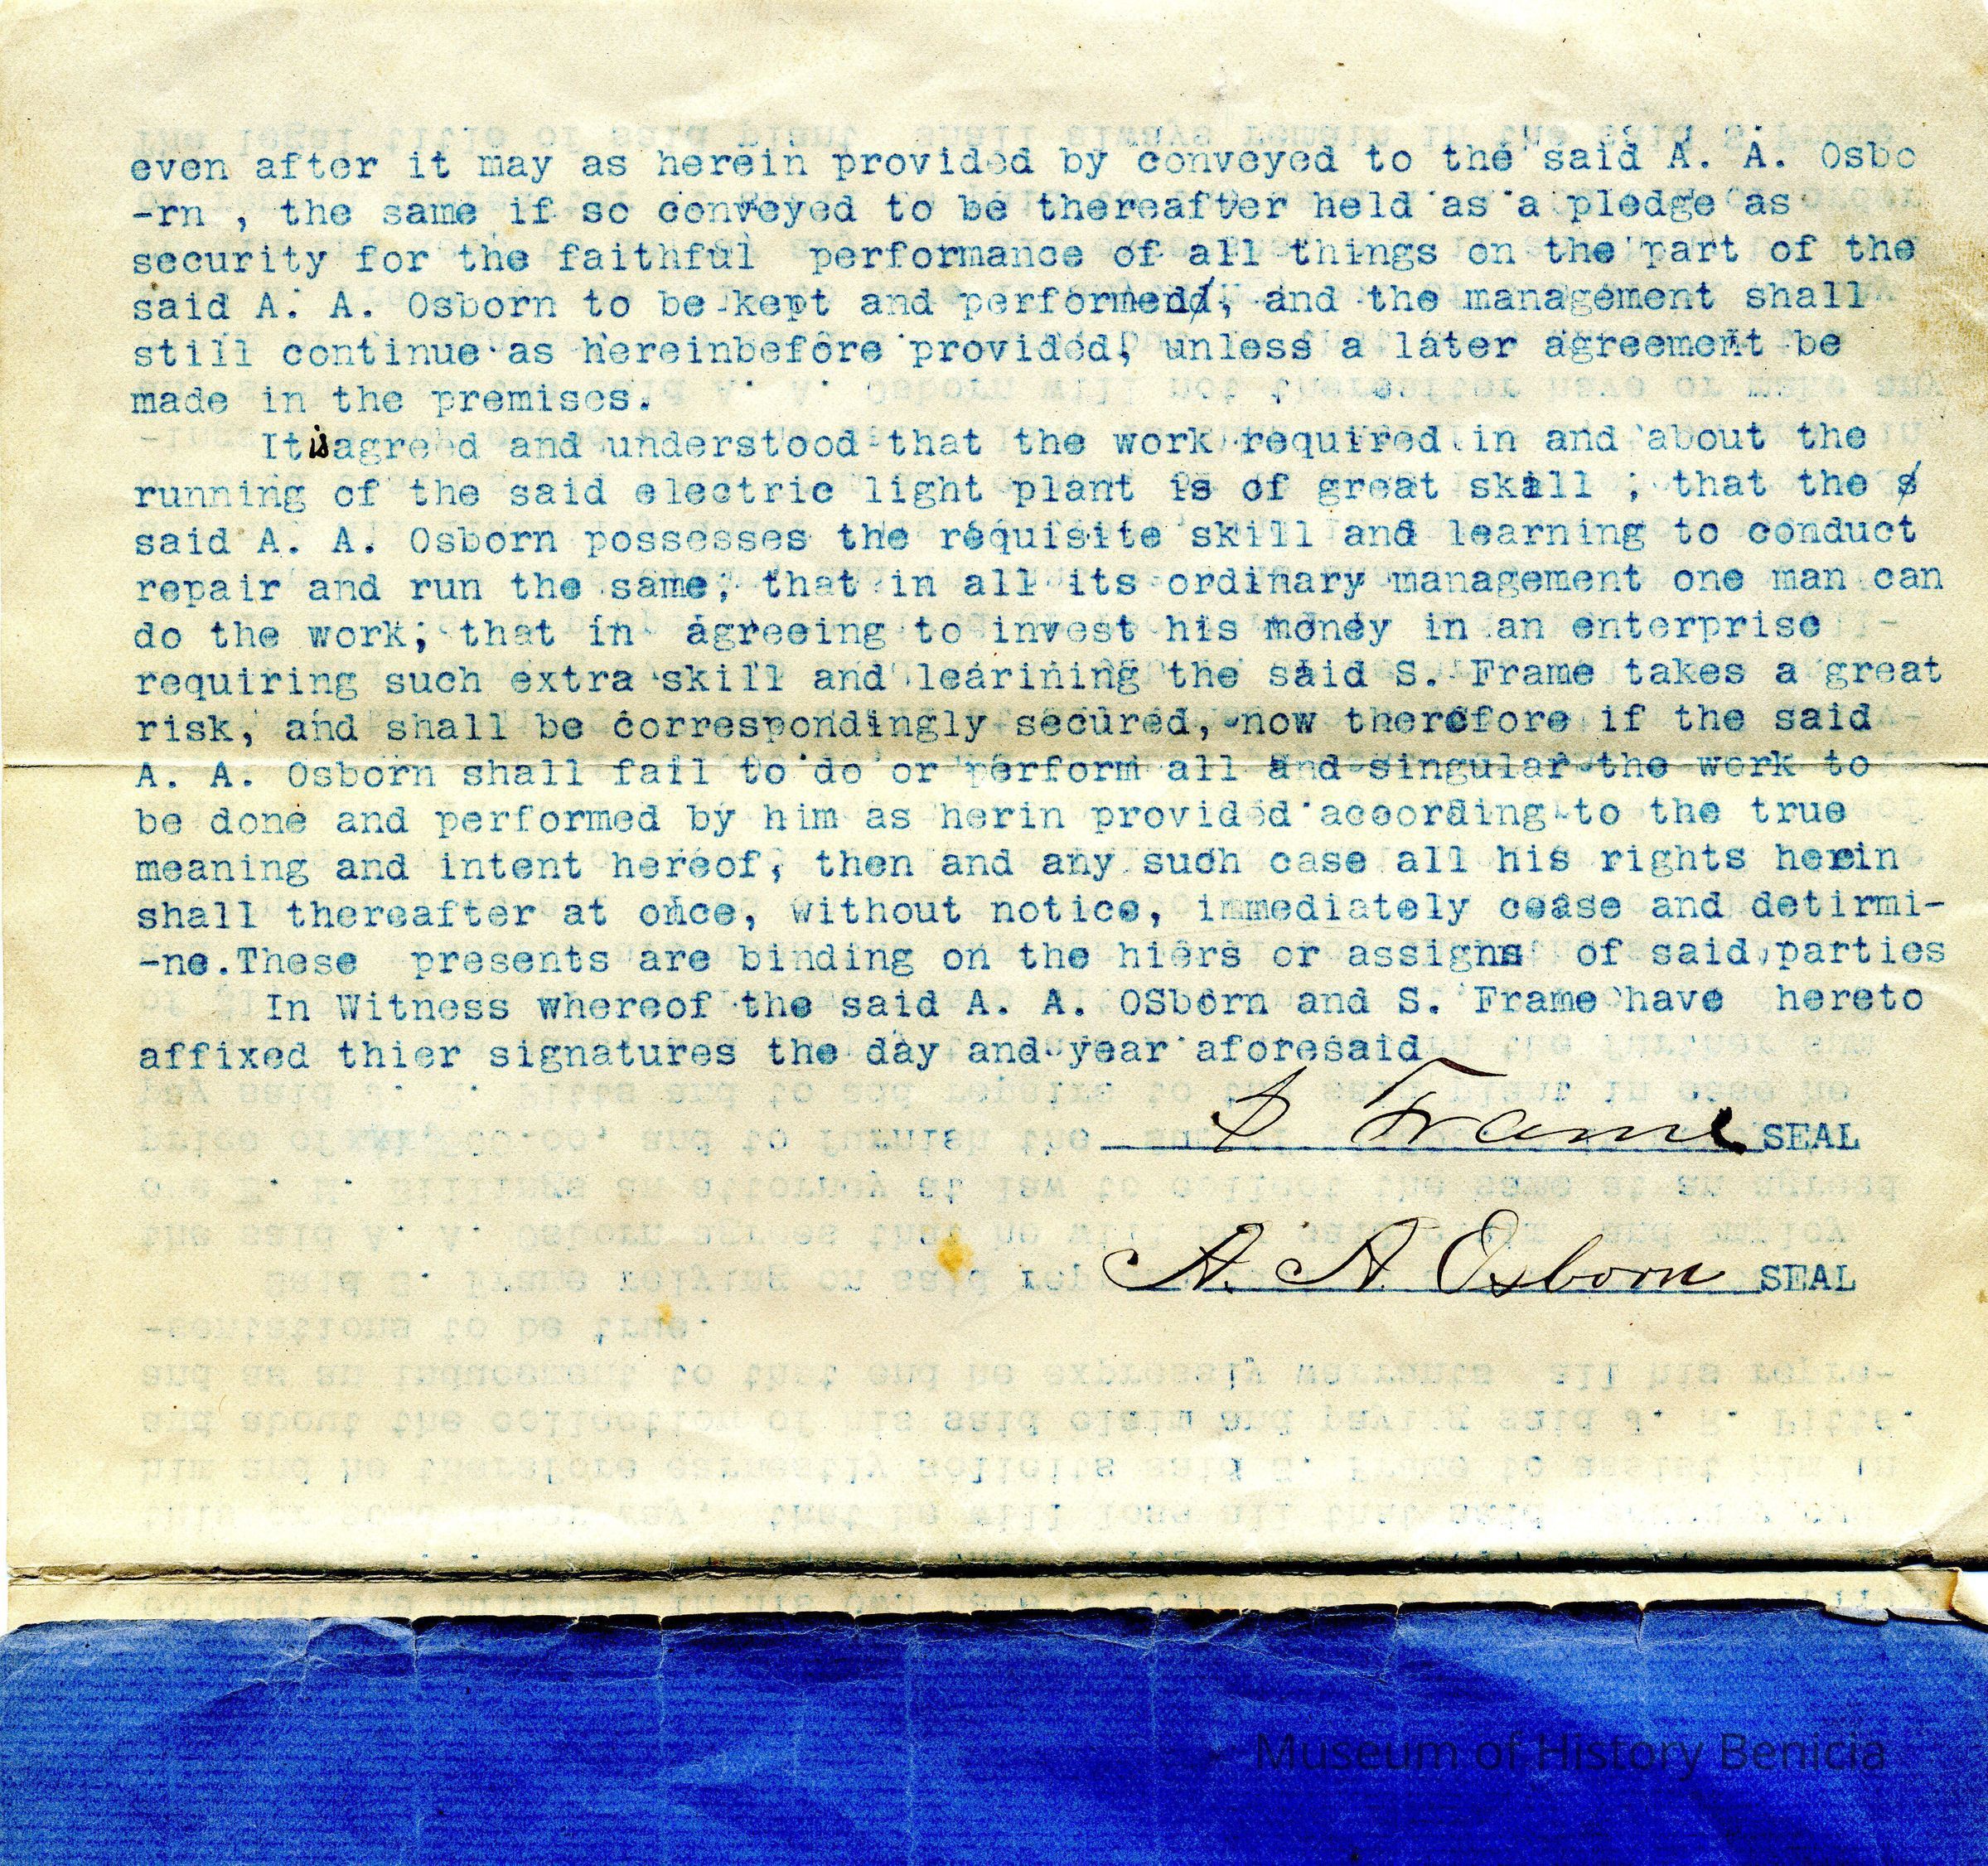 even after it may as herein provided by conveyed to the said A. A. Osbo
-rn , the same if so conveyed to be thereafter held as a pledge as
security for the faithful performance of all things on the part of the
said A. A. Osborn to be kept and performedd, and the management shall
still continue as hereinbefore provided, unless a later agreement be
made in the premises.
It is agreed and understood that the work required in and about the
running of the said electric light plant is of great skill ; that the s
said A. A. Osborn possesses the requisite skill and learning to conduct
repair and run the same; that in all its ordinary management one man can
do the work; that in agreeing to invest his money in an enterprise
requiring such extra skill and learining the said S. Frame takes a great
risk, and shall be correspondingly secured, now therefore if the said
A. A. Osborn shall fail to do or perform all and singular the work to
be done and performed by him as herin provided according to the true
meaning and intent hereof, then and any such case all his rights herein
shall thereafter at once, without notice, immediately cease and detirmi-
-ne.These presents are binding on the hiers or assigns of said parties
In Witness whereof the said A. A. OSborn and S. Frame have hereto
affixed thier signatures the day and year aforesaid
S Frame SEAL
A. A Osborn SEAL
Museum of History Benicia